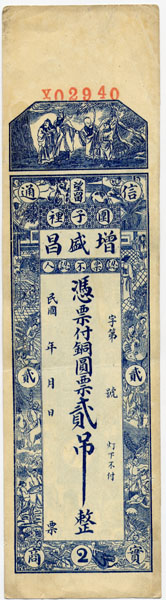 X02940
信 通
留
園子裡
增盛昌
憑票付銅圓票貳吊整
字第 號
灯下不付
民國 年 月 日 票
貳 貳
實 2 商